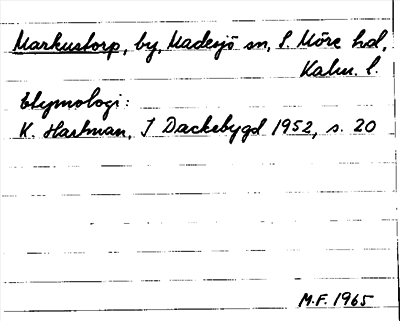 Markustorp, by, Madesjö sn, S. Möre hd,
Kalm. l.
Etymologi:
K. Hartman, I Dackebygd 1952, s. 20
M.F. 1965